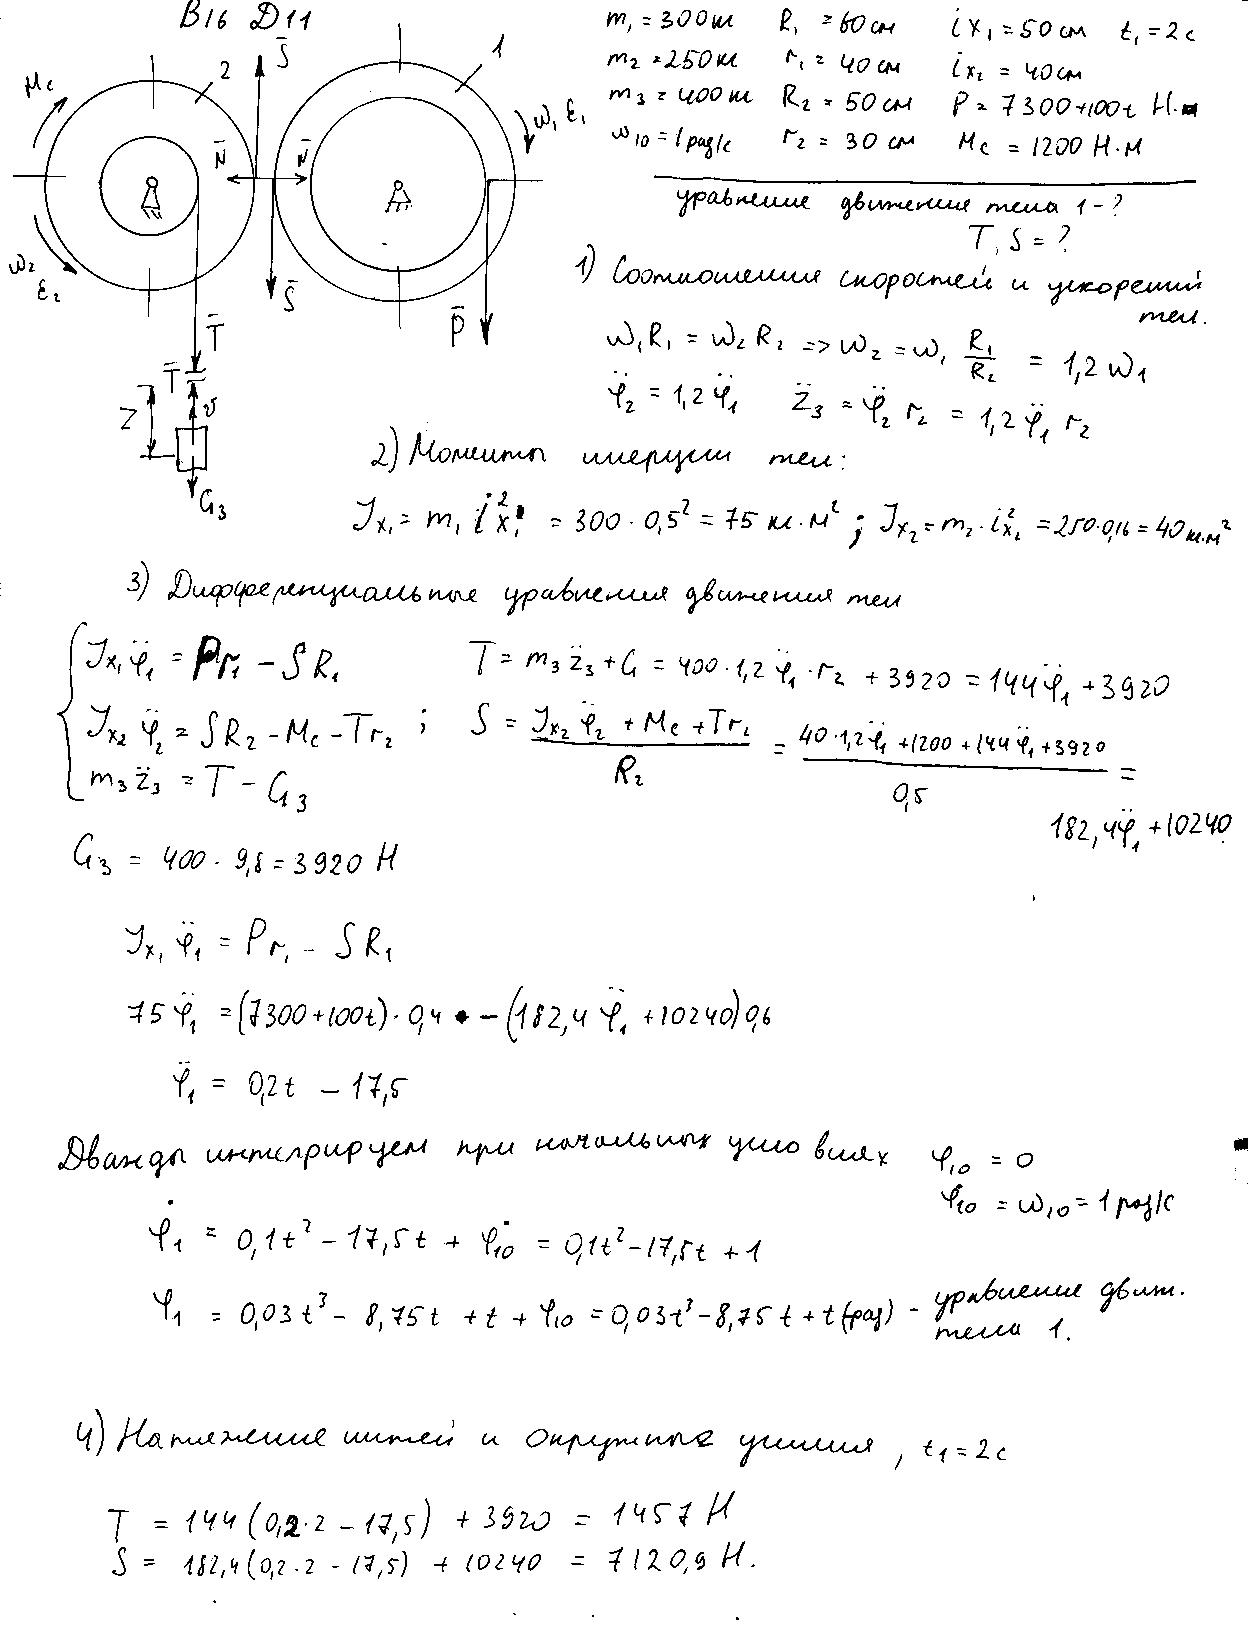 В16 Д11
m₁ = 300 кг R₁ = 60 см ix₁ = 50 см t₁ = 2 с
m₂ = 250 кг r₁ = 40 см ix₂ = 40 см
m₃ = 400 кг R₂ = 50 см P = 7300+100t Н
ω₁₀ = 1 рад/с r₂ = 30 см Mc = 1200 Н·м
уравнение движения тела 1 - ?
T, S = ?
Mc 2 S̄ 1 ω₁ ε₁
N̄ N̄
ω₂ ε₂ S̄ P̄
T̄
T̄
Z v̄
G₃
1) Соотношения скоростей и ускорений
тел.
ω₁R₁ = ω₂R₂ => ω₂ = ω₁ R₁/R₂ = 1,2 ω₁
φ̈₂ = 1,2 φ̈₁ z̈₃ = φ̈₂ r₂ = 1,2 φ̈₁ r₂
2) Моменты инерции тел:
Jx₁ = m₁ i²x₁ = 300 · 0,5² = 75 кг·м² ; Jx₂ = m₂ · i²x₂ = 250·0,16 = 40 кг·м²
3) Дифференциальные уравнения движения тел
Jx₁φ̈₁ = Pr₁ - SR₁ T = m₃z̈₃ + G = 400·1,2 φ̈₁·r₂ + 3920 = 144φ̈₁ + 3920
Jx₂φ̈₂ = SR₂ - Mc - Tr₂ ; S = (Jx₂φ̈₂ + Mc + Tr₂)/R₂ = (40·1,2φ̈₁ + 1200 + 144φ̈₁ + 3920)/0,5 =
m₃z̈₃ = T - G₃
182,4φ̈₁ + 10240
G₃ = 400 · 9,8 = 3920 Н
Jx₁φ̈₁ = Pr₁ - SR₁
75φ̈₁ = (7300+100t)·0,4 - (182,4φ̈₁ + 10240)0,6
φ̈₁ = 0,2t - 17,5
Дважды интегрируем при начальных условиях φ₁₀ = 0
φ̇₁₀ = ω₁₀ = 1 рад/с
φ̇₁ = 0,1t² - 17,5t + φ̇₁₀ = 0,1t² - 17,5t + 1
φ₁ = 0,03t³ - 8,75t + t + φ₁₀ = 0,03t³ - 8,75t + t (рад) - уравнение движ.
тела 1.
4) Натяжение нитей и окружные усилия, t₁ = 2 с
T = 144(0,2·2 - 17,5) + 3920 = 1457 Н
S = 182,4(0,2·2 - 17,5) + 10240 = 7120,9 Н.